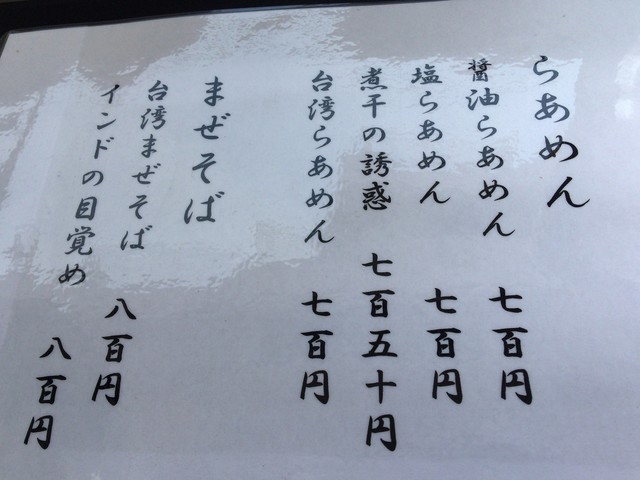 らあめん
醤油らあめん 七百円
塩らあめん 七百円
煮干の誘惑 七百五十円
台湾らあめん 七百円
まぜそば
台湾まぜそば 八百円
インドの目覚め 八百円